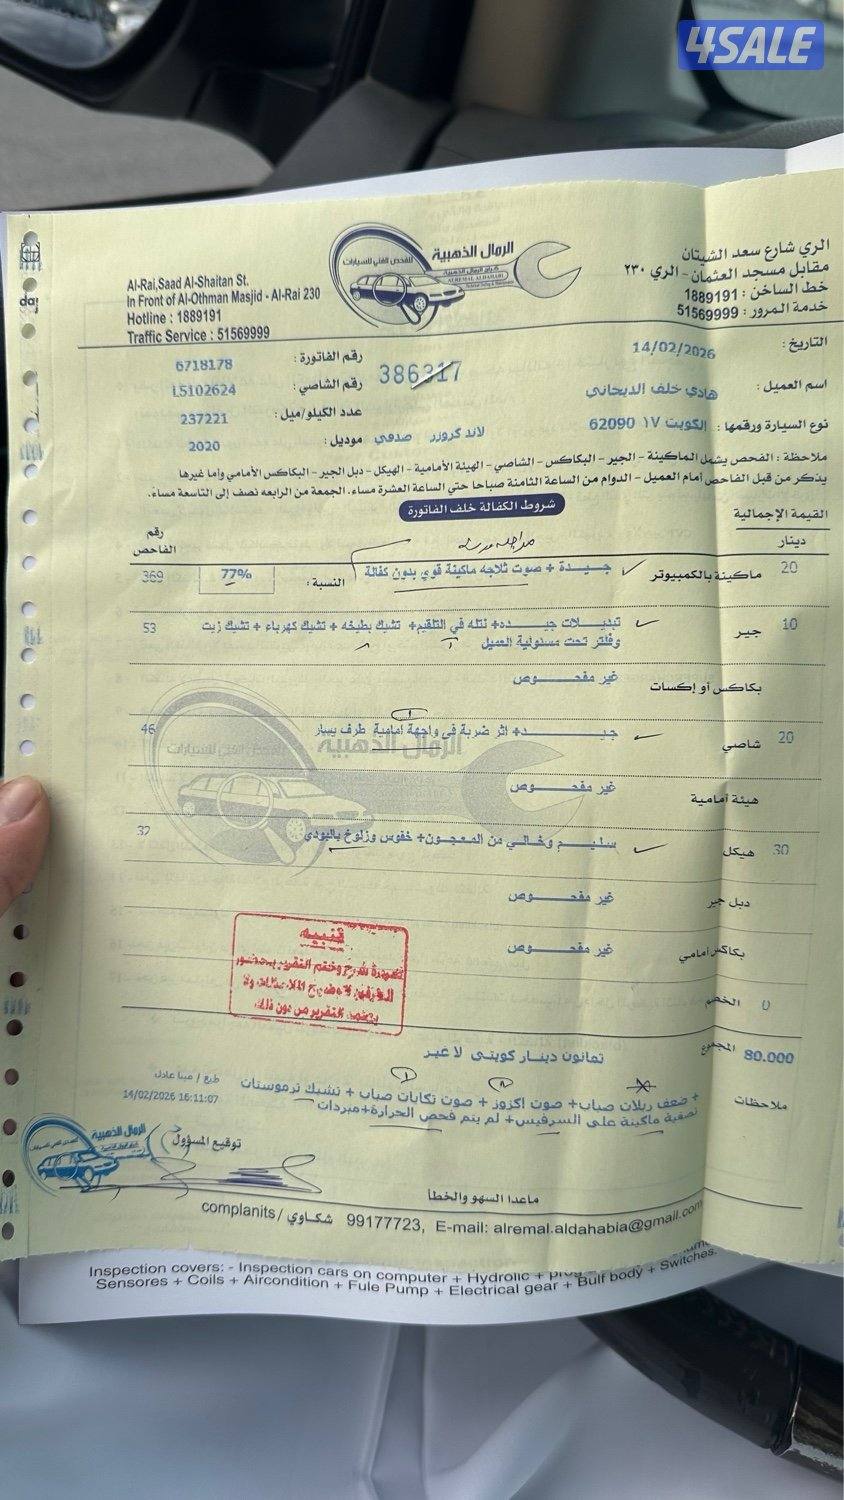 4SALE
الرمال الذهبية
للفحص الفني للسيارات
كراج الرمال الذهبية
AL REMAL ALDAHABI
Al-Rai,Saad Al-Shaitan St.
In Front of Al-Othman Masjid - Al-Rai 230
Hotline : 1889191
Traffic Service : 51569999
الري شارع سعد الشيتان
مقابل مسجد العثمان - الري ٢٣٠
خط الساخن : 1889191
خدمة المرور : 51569999
التاريخ : 14/02/2026
386317
رقم الفاتورة : 6718178
اسم العميل : هادي خلف الديحاني
رقم الشاصي : L5102624
نوع السيارة ورقمها : الكويت ١٧ 62090 لاند كروزر صدفي
عدد الكيلو/ميل : 237221
موديل : 2020
ملاحظة : الفحص يشمل الماكينة - الجير - البكاكس - الشاصي - الهيئة الأمامية - الهيكل - دبل الجير - البكاكس الأمامي وأما غيرها
يذكر من قبل الفاحص أمام العميل - الدوام من الساعة الثامنة صباحا حتي الساعة العشرة مساء. الجمعة من الرابعه نصف إلى التاسعة مساء.
شروط الكفالة خلف الفاتورة
القيمة الإجمالية
دينار
رقم الفاحص
20 ماكينة بالكمبيوتر جـيـدة + صوت ثلاجه ماكينة قوي بدون كفالة النسبة : 77% 369
10 جير تبديـلات جيـده+ نتله في التلقيم+ تشيك بطيخه + تشيك كهرباء + تشيك زيت 53
وفلتر تحت مسئولية العميل
بكاكس أو إكسات غير مفحـوص
20 شاصي جيـد+ اثر ضربة في واجهة امامية طرف يسار 46
هيئة أمامية غير مفحـوص
30 هيكل سليـم وخالي من المعجون+ خفوس وزلوخ بالبودي 32
دبل جير غير مفحـوص
بكاكس أمامي غير مفحـوص
الخصم 0
تنبيه
80.000 المجموع ثمانون دينار كويتي لا غير
ملاحظات + ضعف ربلات صباب+ صوت اكزوز + صوت تكايات صباب + تشيك ترموستات
تصفية ماكينة على السرفيس+ لم يتم فحص الحرارة+مبردات
طبع / مينا عادل
14/02/2026 16:11:07
توقيع المسؤول
الرمال الذهبية
ماعدا السهو والخطأ
complanits / شكاوي 99177723, E-mail: alremal.aldahabia@gmail.com
Inspection covers: - Inspection cars on computer + Hydrolic +
Sensores + Coils + Aircondition + Fule Pump + Electrical gear + Bulf body + Switches.